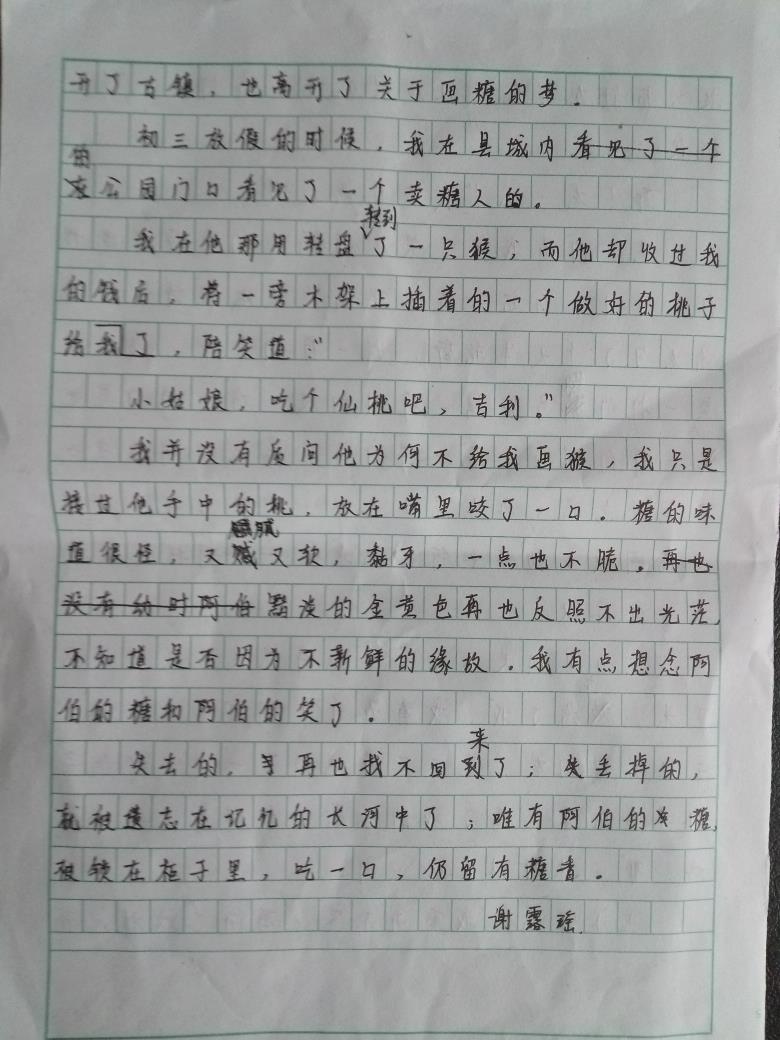 开了古镇，也离开了关于画糖的梦。
初三放假的时候，我在县城内看见了一个
的
公园门口看见了一个卖糖人的。
转到
我在他那用转盘了一只猴，而他却收过我
的钱后，将一旁木架上插着的一个做好的桃子
给我了，陪笑道：“
小姑娘，吃个仙桃吧，吉利。”
我并没有质问他为何不给我画猴，我只是
接过他手中的桃，放在嘴里咬了一口。糖的味
腻
道很怪，又又软，黏牙，一点也不脆。再也
没有幼时阿伯黯淡的金黄色再也反照不出光茫，
不知道是否因为不新鲜的缘故。我有点想念阿
伯的糖和阿伯的笑了。
来
失去的，再也找不回到了；失丢掉的，
就被遗忘在记忆的长河中了；唯有阿伯的糖，
被锁在柜子里，吃一口，仍留有糖香。
谢露瑶